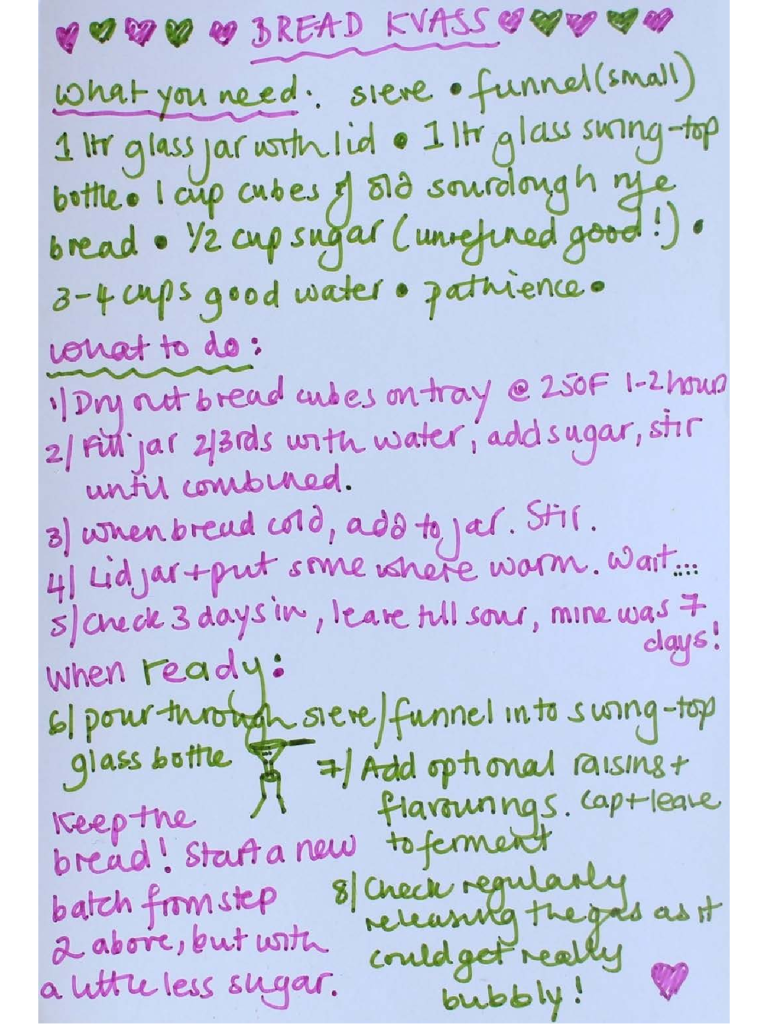 BREAD KVASS
What you need: sieve • funnel (small)
1 ltr glass jar with lid • 1 ltr glass swing-top
bottle • 1 cup cubes of old sourdough rye
bread • 1/2 cup sugar (unrefined good!) •
3-4 cups good water • pathience •
What to do:
1/ Dry out bread cubes on tray @ 250F 1-2 hours
2/ Fill jar 2/3rds with water, add sugar, stir
until combined.
3/ When bread cold, add to jar. Stir.
4/ Lid jar + put some where warm. Wait....
5/ Check 3 days in, leave till sour, mine was 7
days!
When ready:
6/ pour through sieve/funnel into swing-top
glass bottle
7/ Add optional raisins +
flavourings. Cap + leave
to ferment
8/ Check regularly
releasing the gas as it
could get really
bubbly!
Keep the
bread! Start a new
batch from step
2 above, but with
a little less sugar.